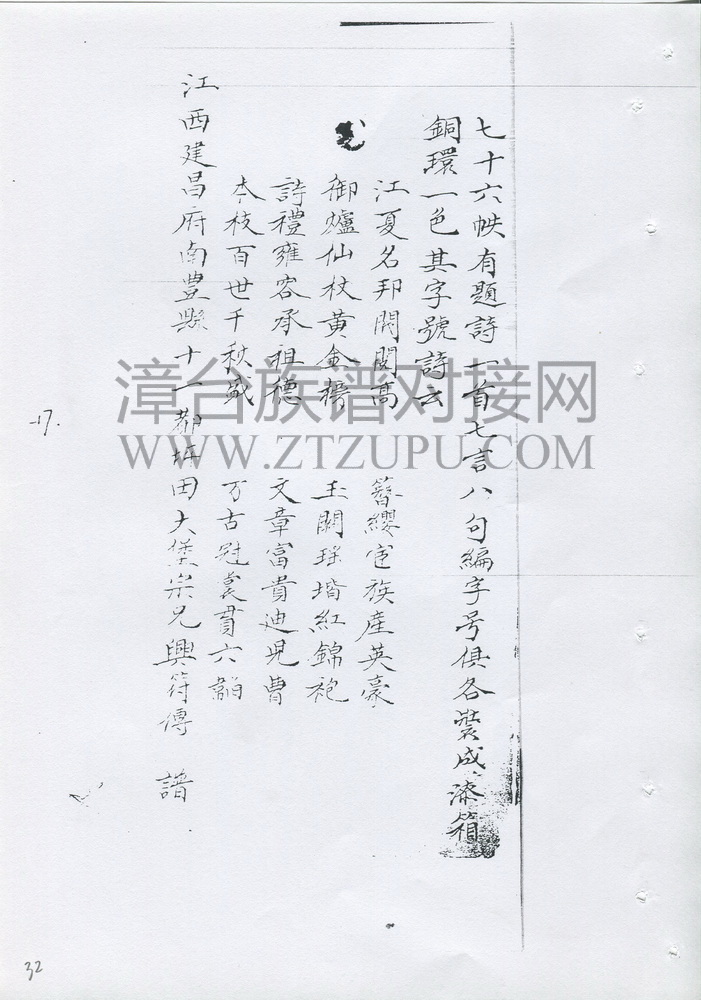 七十六帙有題詩一首七言八句編字号俱各裝成漆箱
銅環一色其字號詩云
江夏名邦閥閱高 簪纓宦族産英豪
御爐仙杖黃金榜 玉闕瑶堦紅錦袍
詩禮雍容承祖德 文章富貴迪児曹
本枝百世千秋盛 万古冠裳貫六韜
江西建昌府南豊縣十一都坪田大堡宗兄興符傳 譜
17.
32
漳台族谱对接网
WWW.ZTZUPU.COM